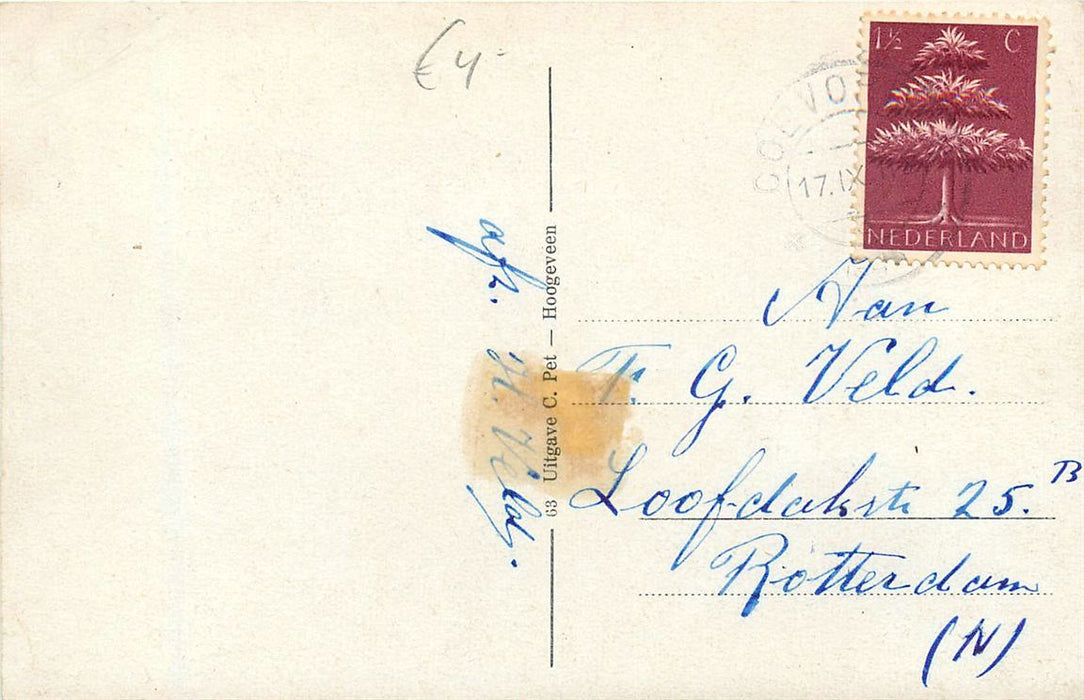 € 4-
1½ C
NEDERLAND
COEVO
17.IX
afz. H. Veld.
63 Uitgave C. Pet — Hoogeveen
Aan
F. G. Veld.
Loofdakstr 25.B
Rotterdam
(N)